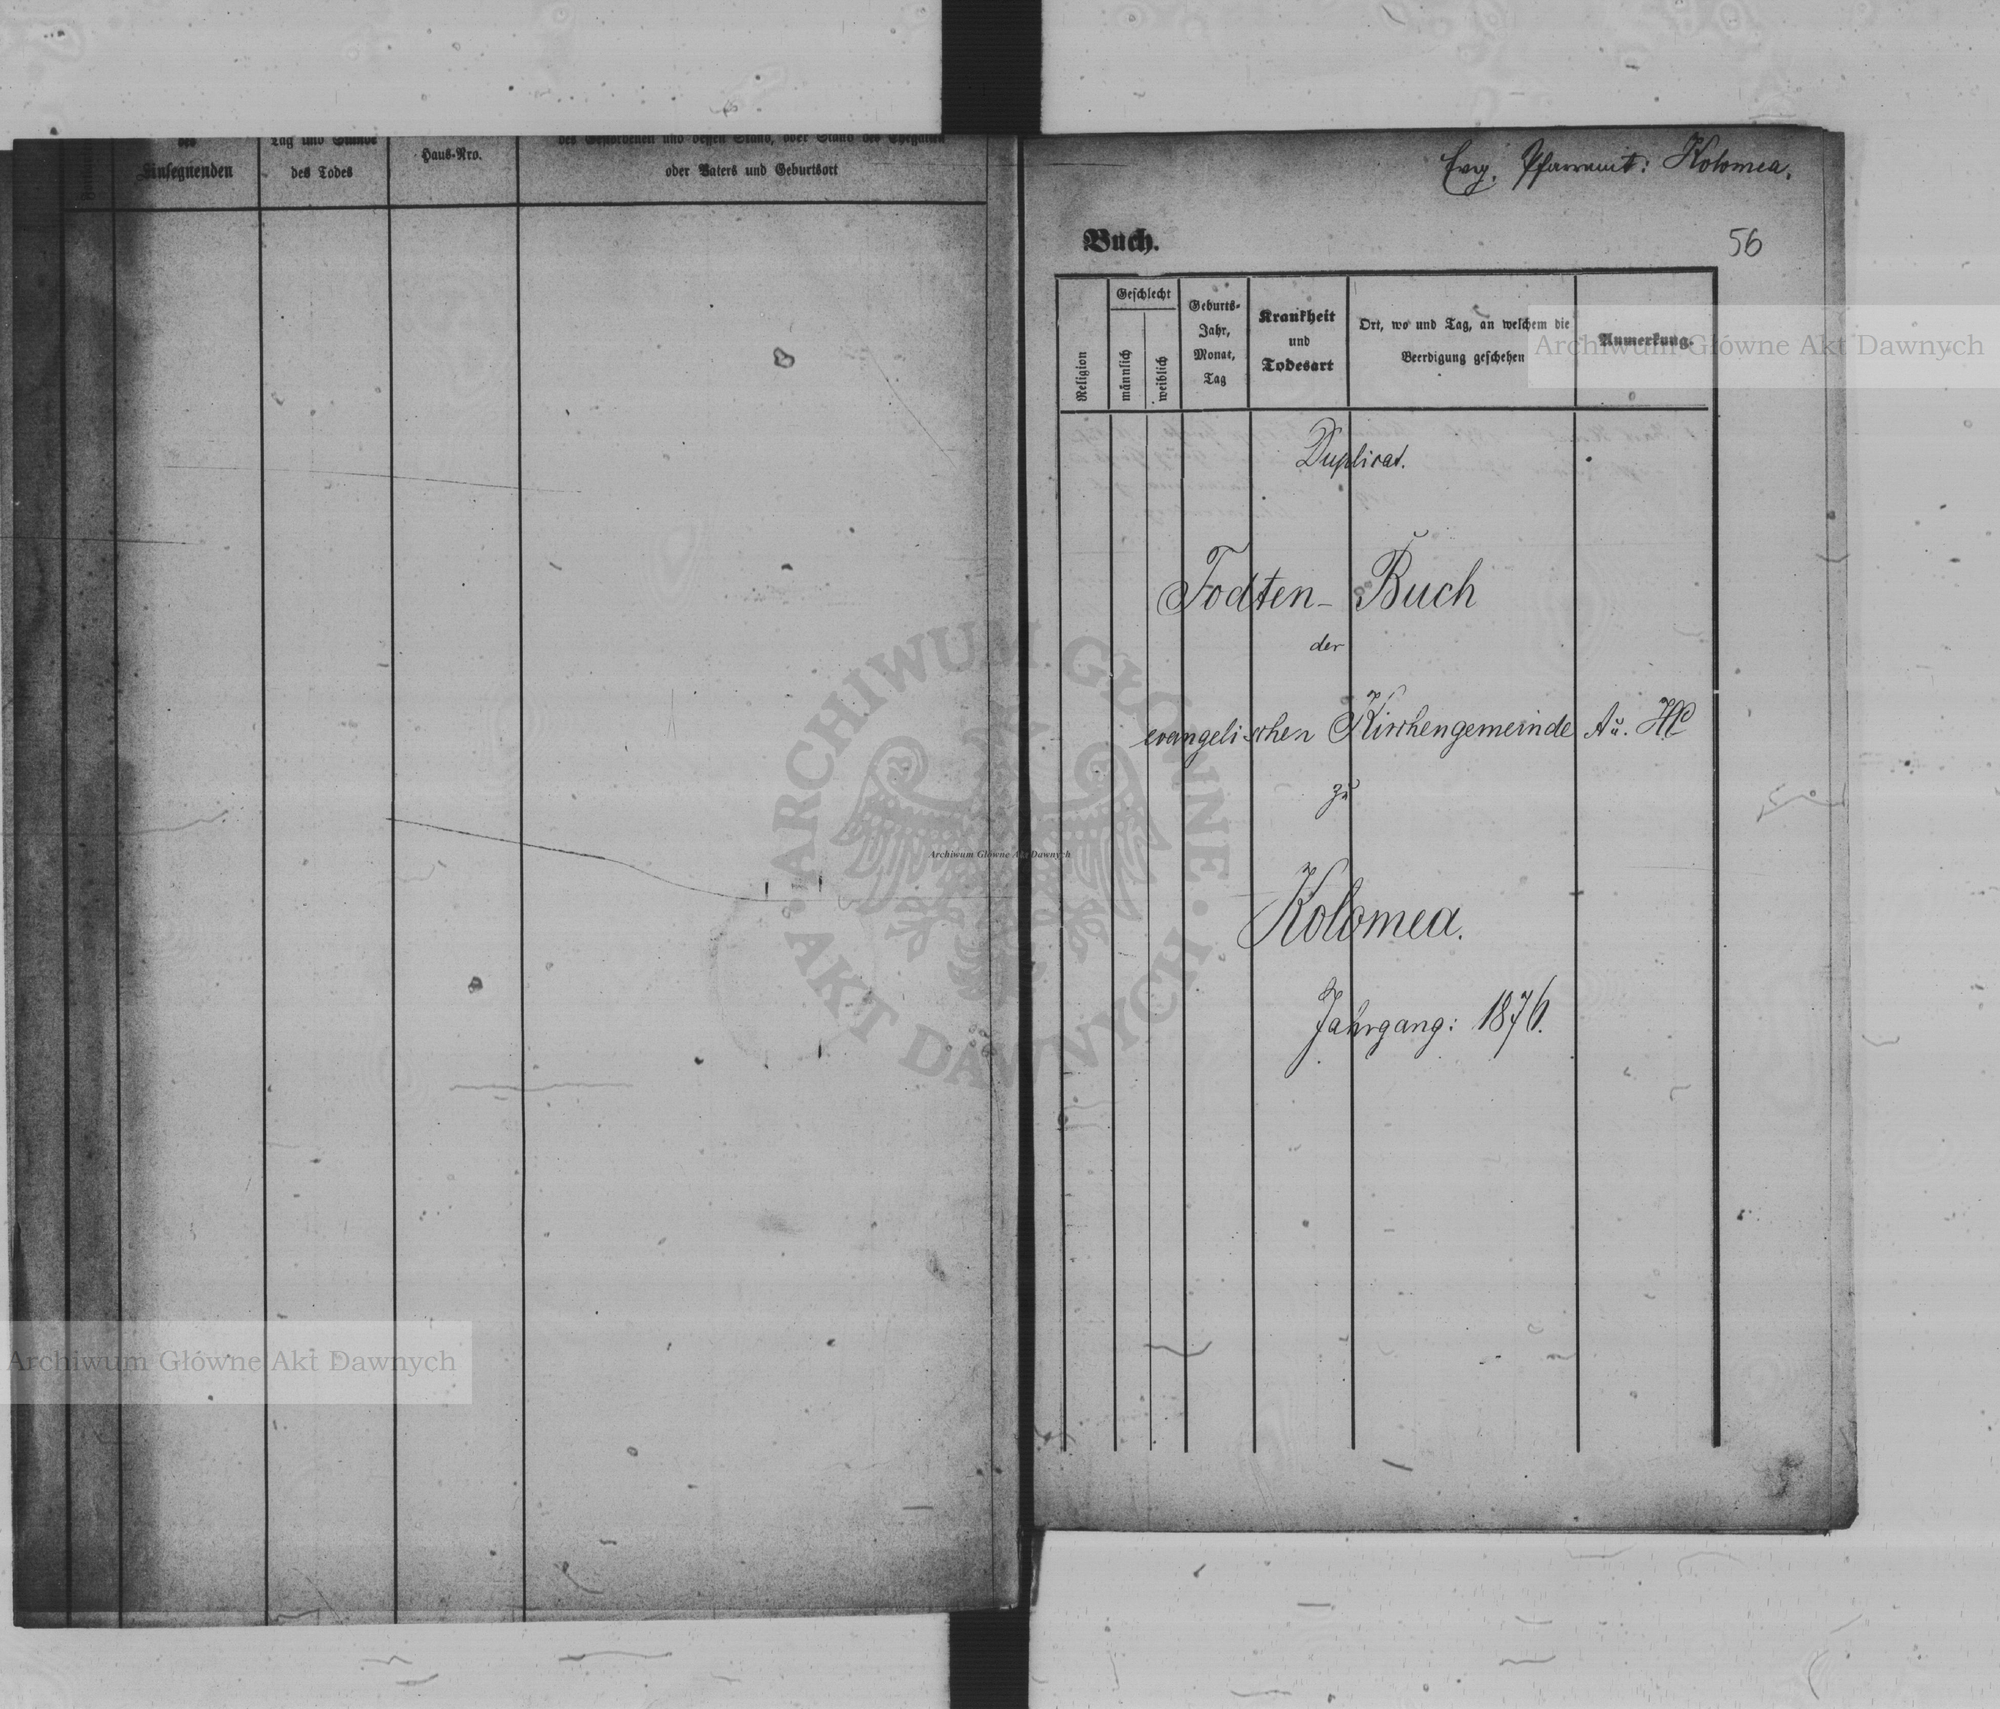 des
Einsegnenden
Tag und Stunde
des Todes
Haus-Nro.
des Gestorbenen und dessen Stand, oder Stand des Ehegatten
oder Vaters und Geburtsort
Evg. Pfarramt: Kolomea.
Buch.
56
Religion
Geschlecht
männlich
weiblich
Geburts-
Jahr,
Monat,
Tag
Krankheit
und
Todesart
Ort, wo und Tag, an welchem die
Beerdigung geschehen
Anmerkung.
Archiwum Główne Akt Dawnych
Duplicat.
Todten-Buch
der
evangelischen Kirchengemeinde A u. HC
zu
Kolomea.
Jahrgang: 1876.
ARCHIWUM GŁÓWNE AKT DAWNYCH
Archiwum Główne Akt Dawnych
Archiwum Główne Akt Dawnych